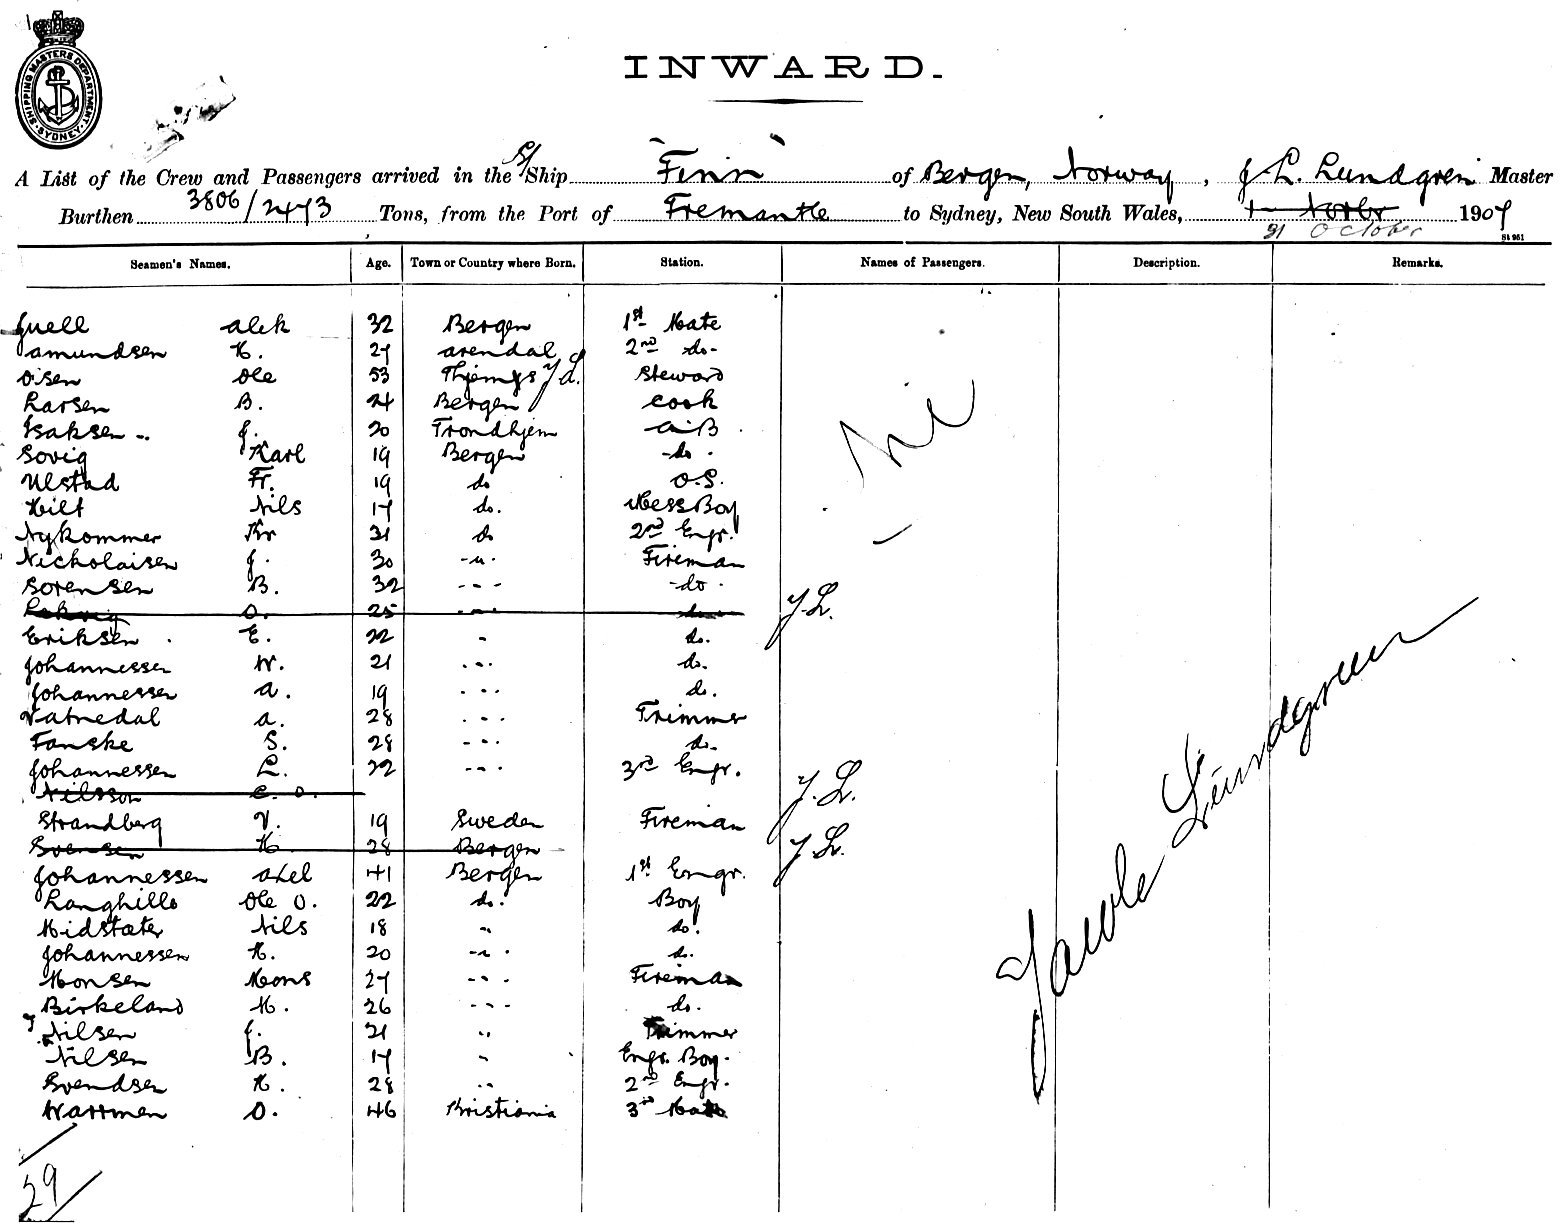 SHIPPING MASTERS DEPARTMENT. SYDNEY.
INWARD.
A List of the Crew and Passengers arrived in the S/Ship "Finn" of Bergen, Norway, J. L. Lundgren Master
Burthen 3806/2473 Tons, from the Port of Fremantle to Sydney, New South Wales, 1 Novbr 1907
31 October
St 951
Seamen's Names. Age. Town or Country where Born. Station. Names of Passengers. Description. Remarks.
Juell Alek 32 Bergen 1st Mate
Amundsen H. 27 Arendal 2nd do-
Olsen Ole 53 J L. Steward
Larsen B. 24 Bergen Cook
Isaksen J. 20 Trondhjem AB
Sovig Karl 19 Bergen do.
Ulstad Fr. 19 do O.S.
Hilt Nils 17 do. Mess Boy
Nykommer Kr 31 do 2nd Engr.
Nicholaisen J. 30 -"- Fireman
Sorensen B. 32 - - - do.
O. 25 - - - do J. L.
Eriksen E. 22 - do.
Johannessen W. 21 - - - do.
Johannessen A. 19 - - - do.
Vatnedal A. 28 - - - Trimmer
Fanske S. 28 - - - do.
Johannessen L. 22 - - - 3rd Engr.
Nilsson C. O. J. L.
Strandberg V. 19 Sweden Fireman
Svensen H. 28 Bergen J L.
Johannessen Axel 41 Bergen 1st Engr.
Langhille Ole O. 22 do. Boy
Midstater Nils 18 " do.
Johannessen H. 20 -"- do.
Monsen Mons 27 - - - Fireman
Birkeland H. 26 - - - do.
Nilsen J. 21 " Trimmer
Nilsen B. 17 " Engr. Boy.
Svendsen H. 28 " 2nd Engr.
Wattmen O. 46 Kristiania 3rd Mate
29
Nil
Jacob Lundgreen